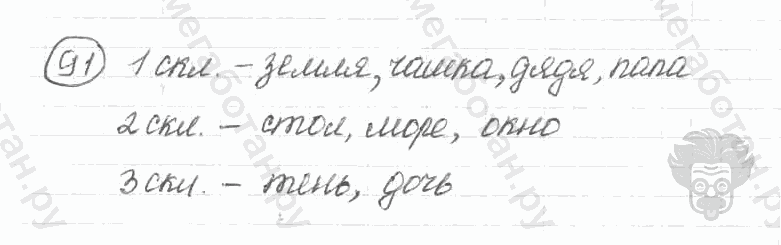 91 1 скл. – земля, чашка, дядя, папа
2 скл. – стол, море, окно
3 скл. – тень, дочь
мегаботан.ру
мегаботан.ру
мегаботан.ру